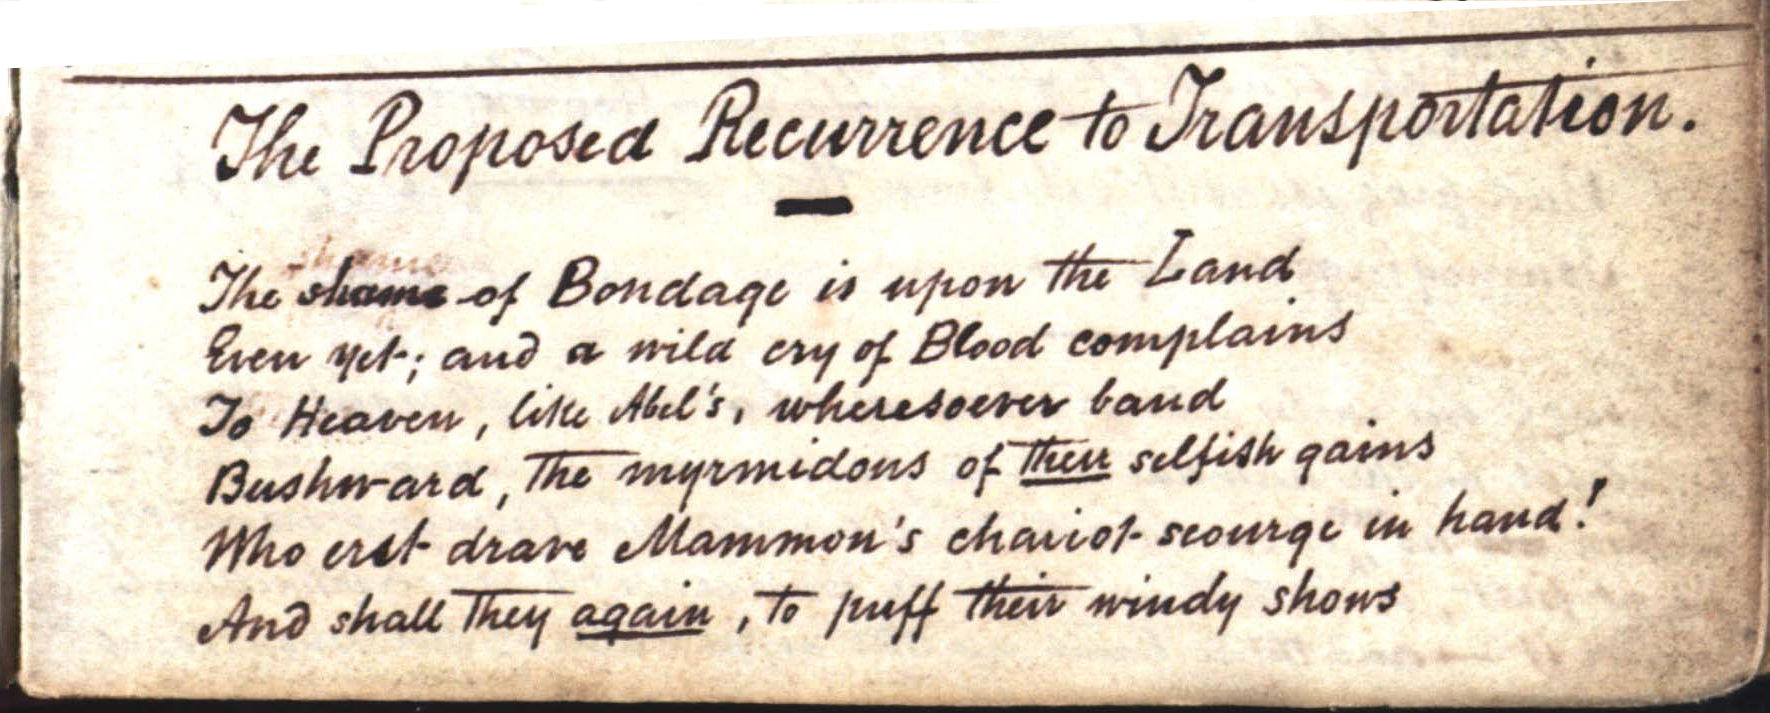 The Proposed Recurrence to Transportation.
shame
The shame of Bondage is upon the Land
Even yet; and a wild cry of Blood complains
To Heaven, like Abel's, wheresoever band
Bushward, the myrmidons of their selfish gains
Who erst drave Mammon's chariot scourge in hand!
And shall they again, to puff their windy shows